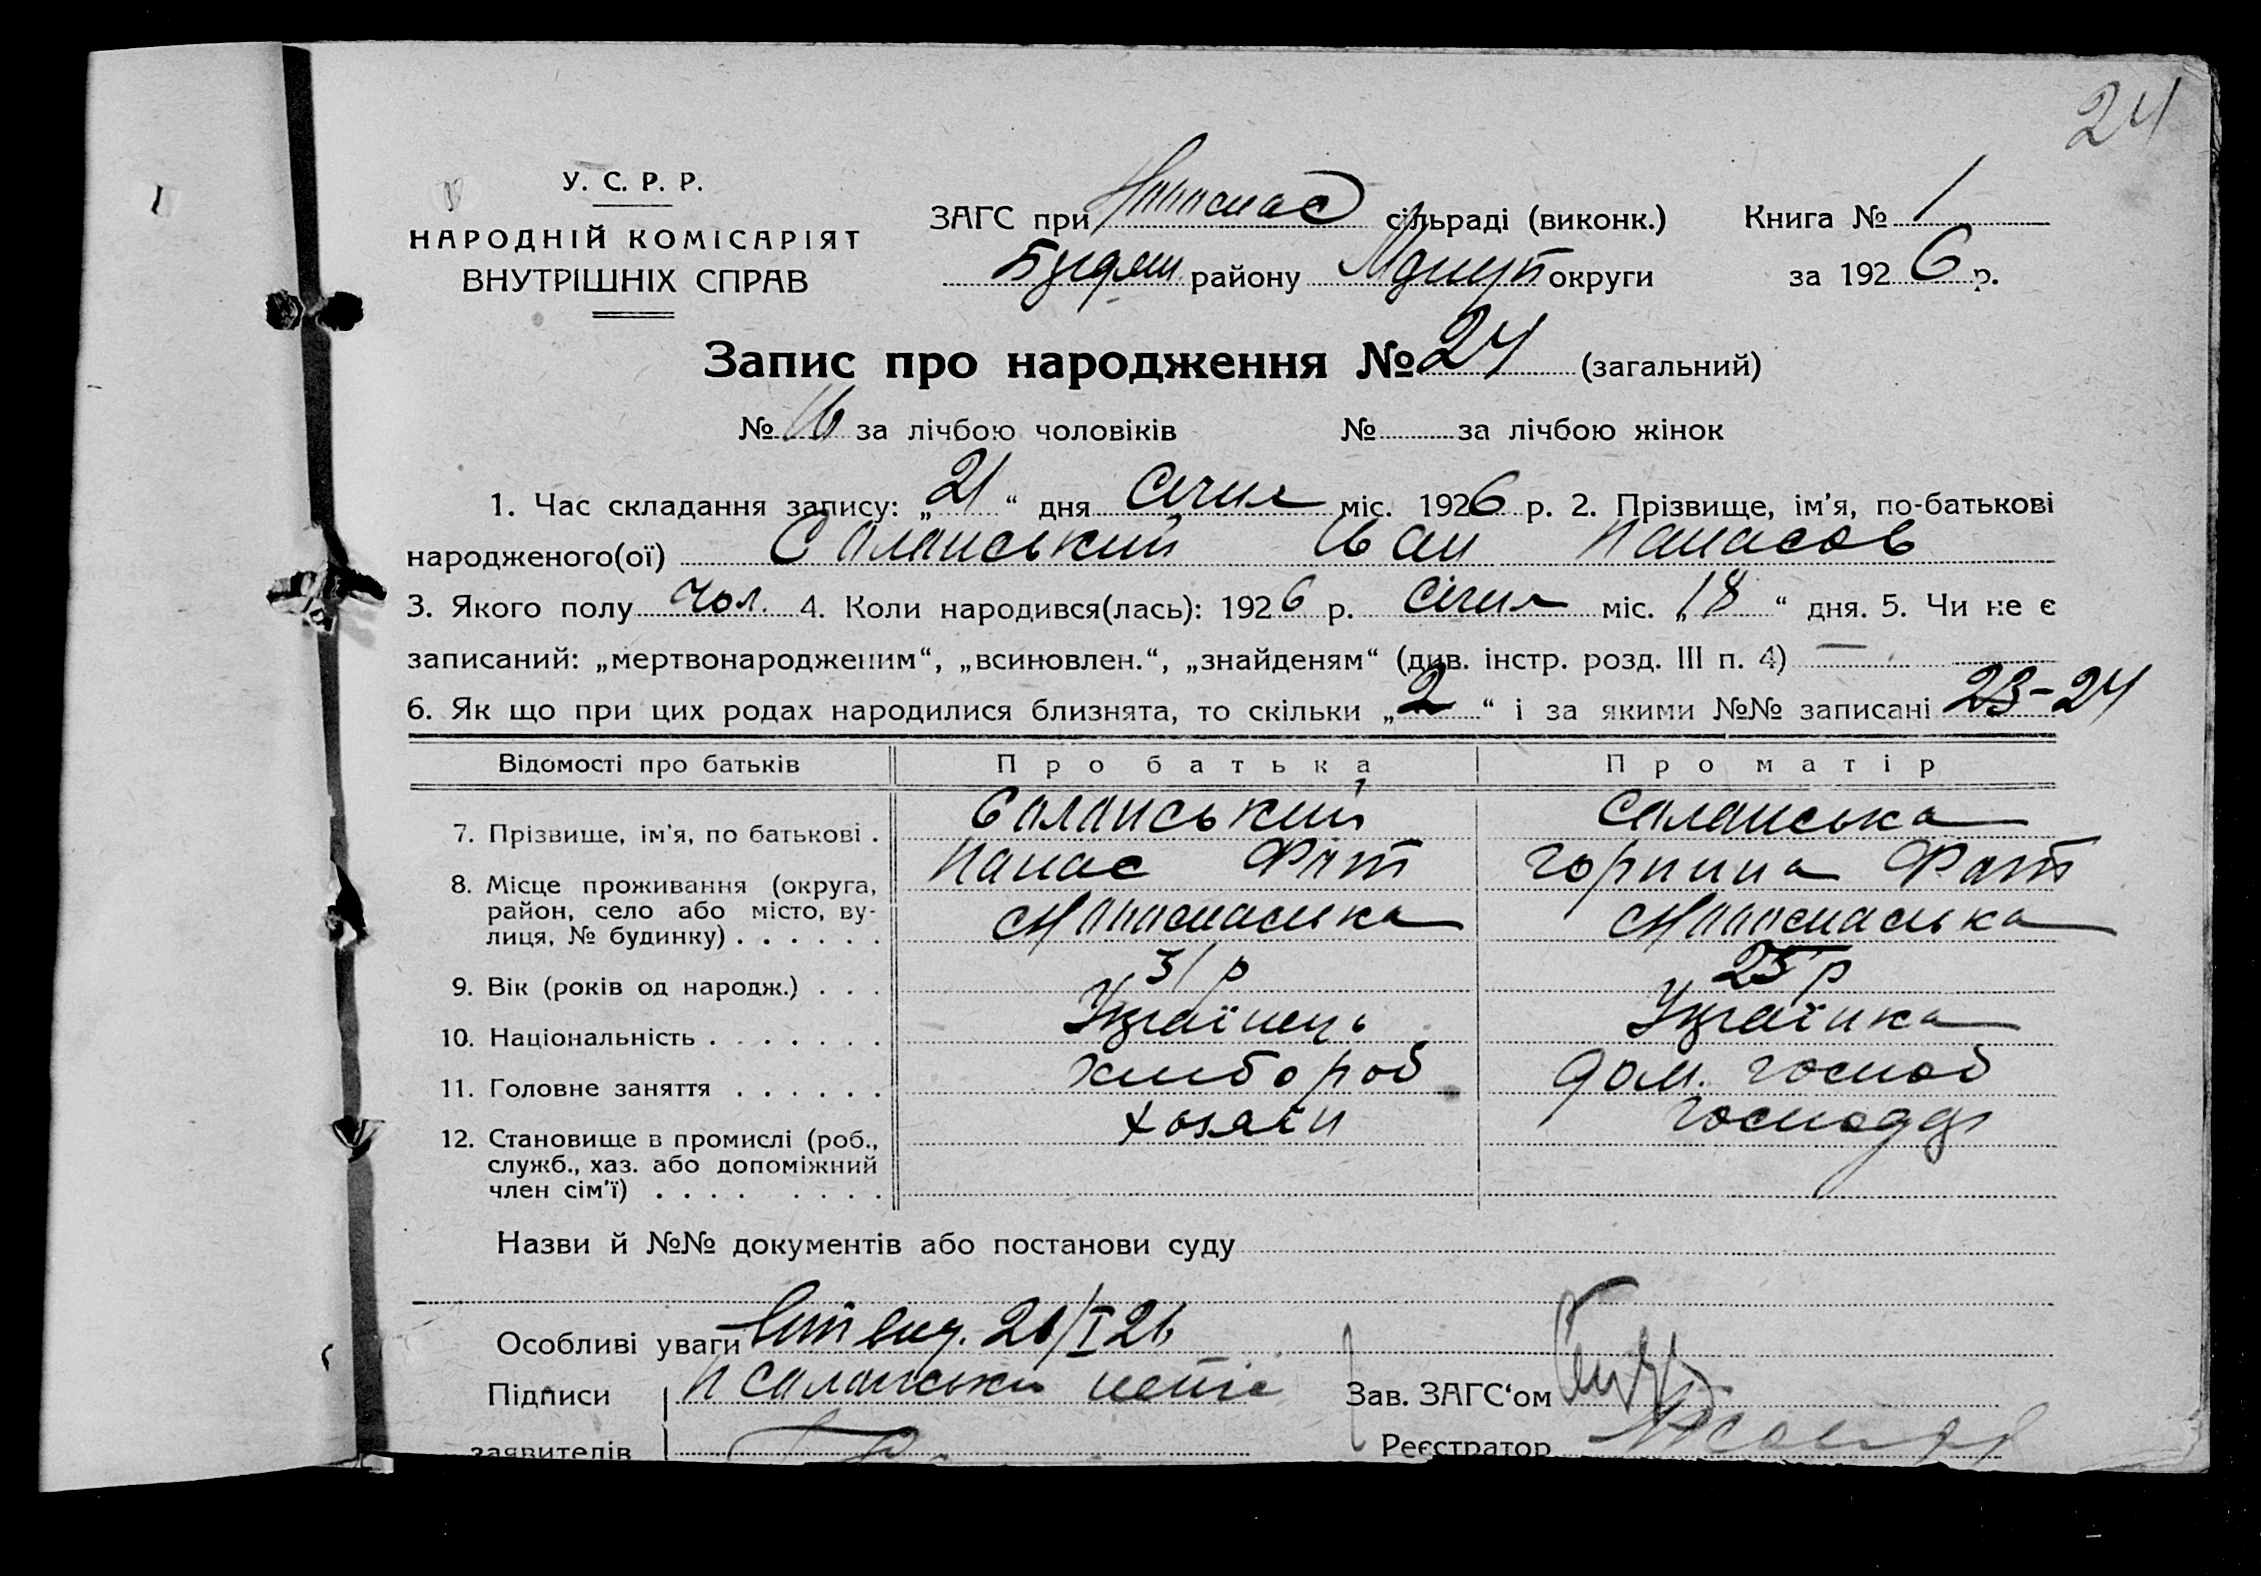 24
У. С. Р. Р.
НАРОДНІЙ КОМІСАРІЯТ
ВНУТРІШНІХ СПРАВ
ЗАГС при сільраді (виконк.) Книга № 1
району округи за 1926 р.
Запис про народження № 24 (загальний)
№ 16 за лічбою чоловіків № за лічбою жінок
1. Час складання запису: „21“ дня Січня міс. 1926 р. 2. Прізвище, ім’я, по-батькові
народженого(ої) Саланський Іван Панасов
3. Якого полу Чол. 4. Коли народився(лась): 1926 р. Січня міс. „18“ дня. 5. Чи не є
записаний: „мертвонародженим“, „всиновлен.“, „знайденям“ (див. інстр. розд. III п. 4) —
6. Як що при цих родах народилися близнята, то скільки „2“ і за якими №№ записані 23-24
Відомості про батьків Про батька Про матір
7. Прізвище, ім’я, по батькові . Саланський Саланська
Панас Горпина
8. Місце проживання (округа,
район, село або місто, ву-
лиця, № будинку) . . . . . .
9. Вік (років од народж.) . . . 31 р 25 р
10. Національність . . . . . . . Українець Українка
11. Головне заняття . . . . . . Хлибороб дом. господ
12. Становище в промислі (роб., хозяїн
служб., хаз. або допоміжний
член сім’ї) . . . . . . . .
Назви й №№ документів або постанови суду
Особливі уваги
Підписи Зав. ЗАГС‘ом
заявителів Реєстратор